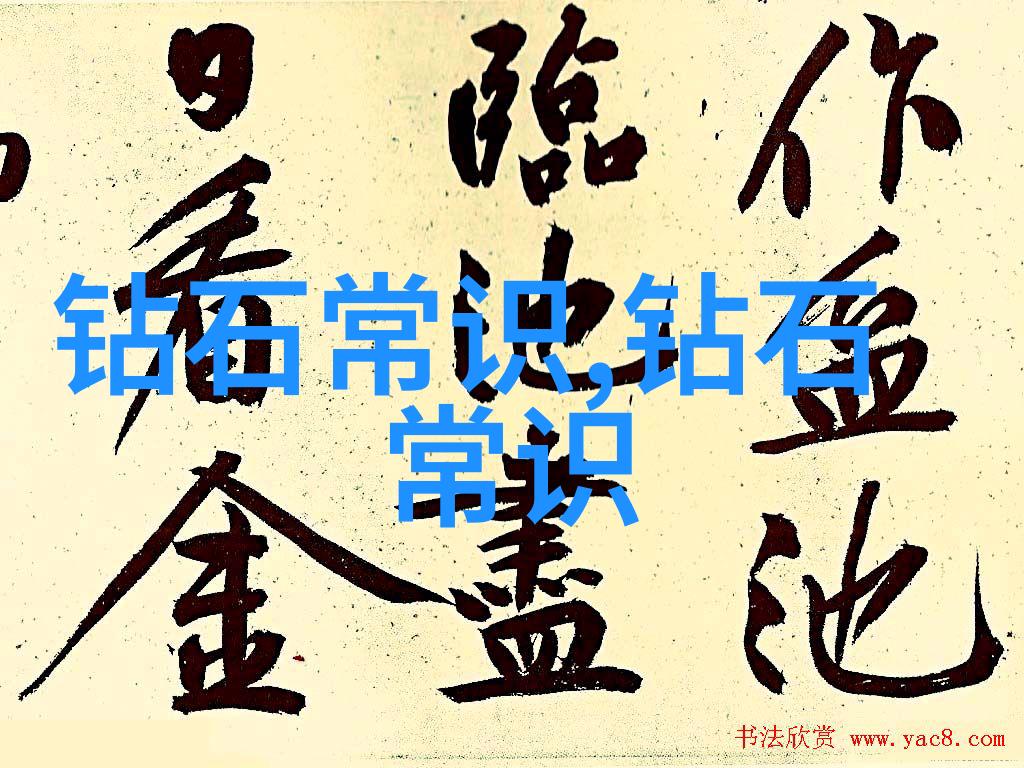 作盈池
臨池盡
日看金
钻石常识,钻石
常识
书法欣赏 www.yac8.com